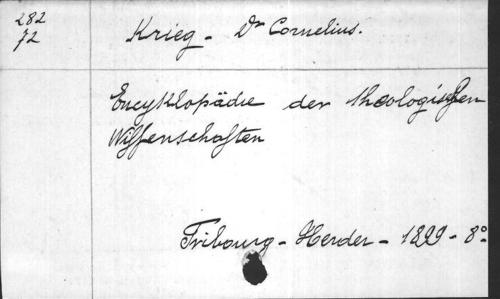 282
72
Krieg - Dr Cornelius.
Encyklopädie der theologischen
Wissenschaften
Fribourg - Herder - 1899 - 8°